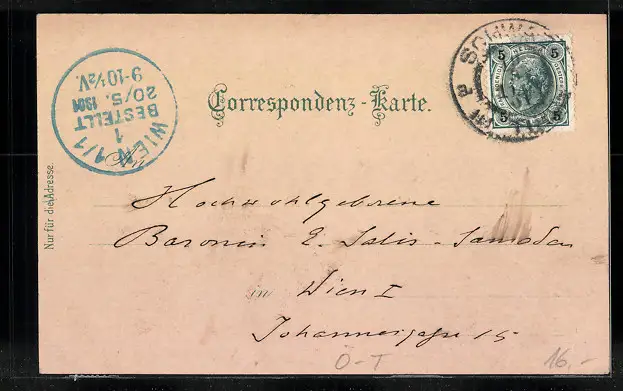 WIEN 1/1
BESTELLT
1
20/5. 1901
9-10½V.
Correspondenz-Karte.
5 5
5 5
An
Hochwohlgeborene
Baronin E. Salis-Samaden
in Wien I
Johannesgasse 15
Nur für die Adresse.
Ö-T
16,-